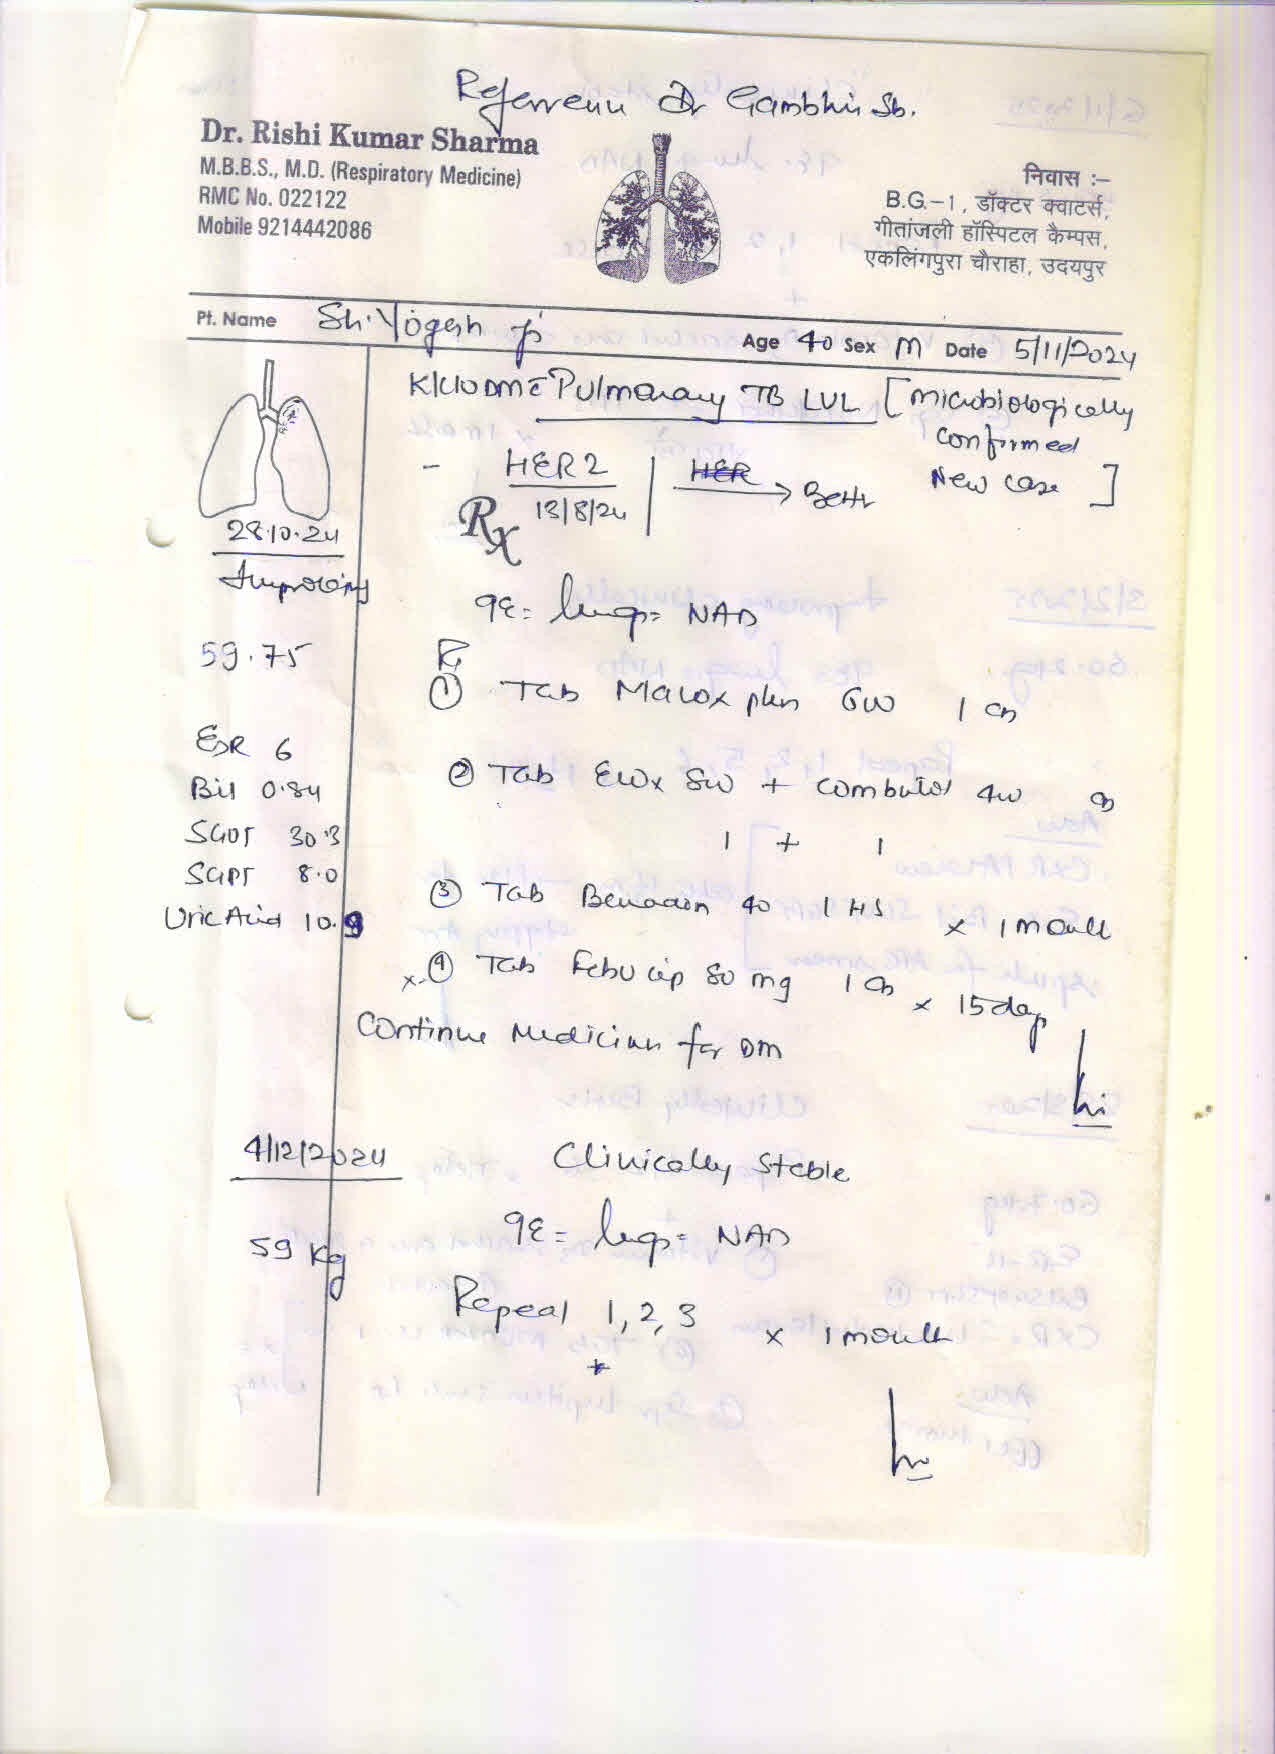 Referrenu Dr Gambhir Sb.
Dr. Rishi Kumar Sharma
M.B.B.S., M.D. (Respiratory Medicine)
RMC No. 022122
Mobile 9214442086
निवास :–
B.G.–1, डॉक्टर क्वाटर्स,
गीतांजली हॉस्पिटल कैम्पस,
एकलिंगपुरा चौराहा, उदयपुर
Pt. Name Sh. Yogesh ji Age 40 Sex M Date 5/11/2024
K/C/O DM c̄ Pulmonary TB LUL [Microbiologically
confirmed
New case ]
- HER2
13/8/24
HER → Better
Rx
28.10.24
Improving
59.75
ESR 6
Bil 0.84
SGOT 30.3
SGPT 8.0
Uric Acid 10.9
Lungs = NAD
R
① Tab Macox plus 600 1 OD
② Tab 800 + Combutol 400 OD
1 + 1
③ Tab Benadon 40 1 HS x 1 month
x ④ Tab Febucip 80 mg 1 OD x 15 day
Continue Medicines for DM
4/12/2024
Clinically Stable
59 Kg
Lungs = NAD
Repeat 1, 2, 3 x 1 month